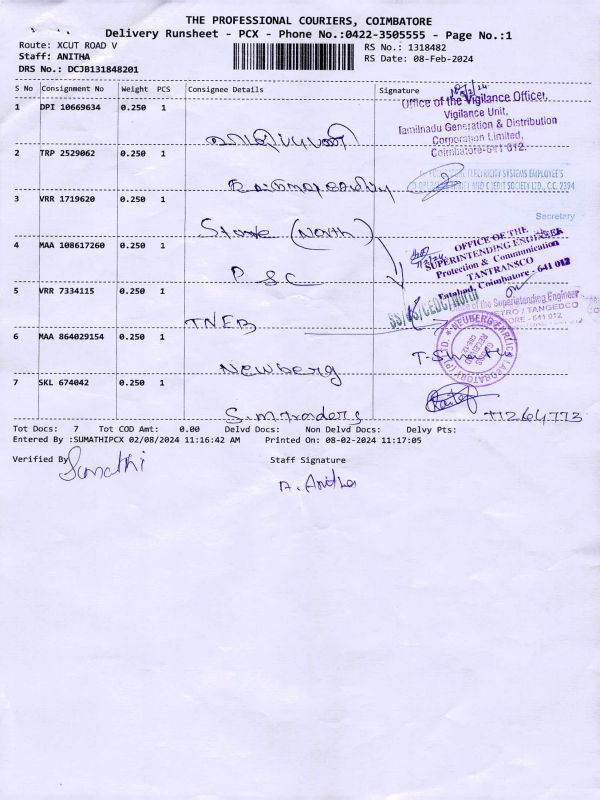 THE PROFESSIONAL COURIERS, COIMBATORE
Delivery Runsheet - PCX - Phone No.:0422-3505555 - Page No.:1
Route: XCUT ROAD V
RS No.: 1318482
Staff: ANITHA
RS Date: 08-Feb-2024
DRS No.: DCJB131848201
S No Consignment No Weight PCS Consignee Details Signature
1 DPI 10669634 0.250 1
Office of the Vigilance Officer,
Vigilance Unit,
Tamilnadu Generation & Distribution
Corporation Limited,
Coimbatore-641 012.
2 TRP 2529062 0.250 1
ELECTRICITY SYSTEMS EMPLOYEE'S
AND CREDIT SOCIETY LTD., C.C. 2394
Secretary
3 VRR 1719620 0.250 1
Store (North)
OFFICE OF THE
SUPERINTENDING ENGINEER
Protection & Communication
TANTRANSCO
Tatabad, Coimbatore - 641 012
4 MAA 108617260 0.250 1
P S C
5 VRR 7334115 0.250 1
TNEB
of the Superintending Engineer
METRO / TANGEDCO
- 641 012
6 MAA 864029154 0.250 1
Newberg
7 SKL 674042 0.250 1
S.M Traders
Tot Docs: 7 Tot COD Amt: 0.00 Delvd Docs: Non Delvd Docs: Delvy Pts:
Entered By :SUMATHIPCX 02/08/2024 11:16:42 AM Printed On: 08-02-2024 11:17:05
Verified By Sumathi
Staff Signature
A. Anitha